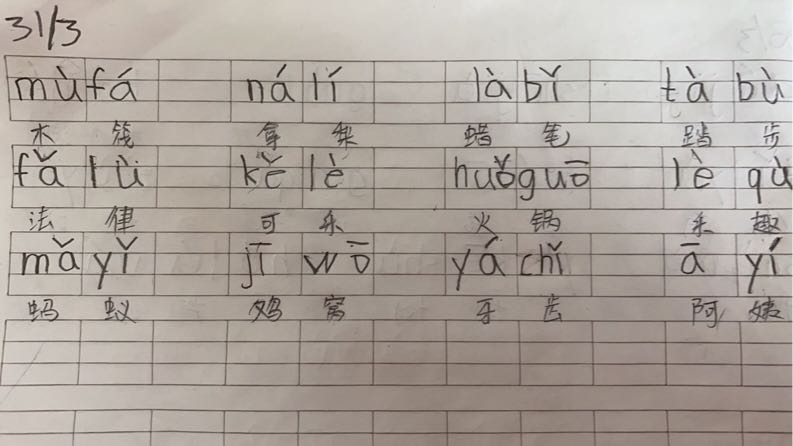 31/3
mù fá ná lí là bǐ tà bù
木 筏 拿 梨 蜡 笔 踏 步
fǎ lǜ kě lè huǒ guō lè qù
法 律 可 乐 火 锅 乐 趣
mǎ yǐ jī wō yá chǐ ā yí
蚂 蚁 鸡 窝 牙 齿 阿 姨